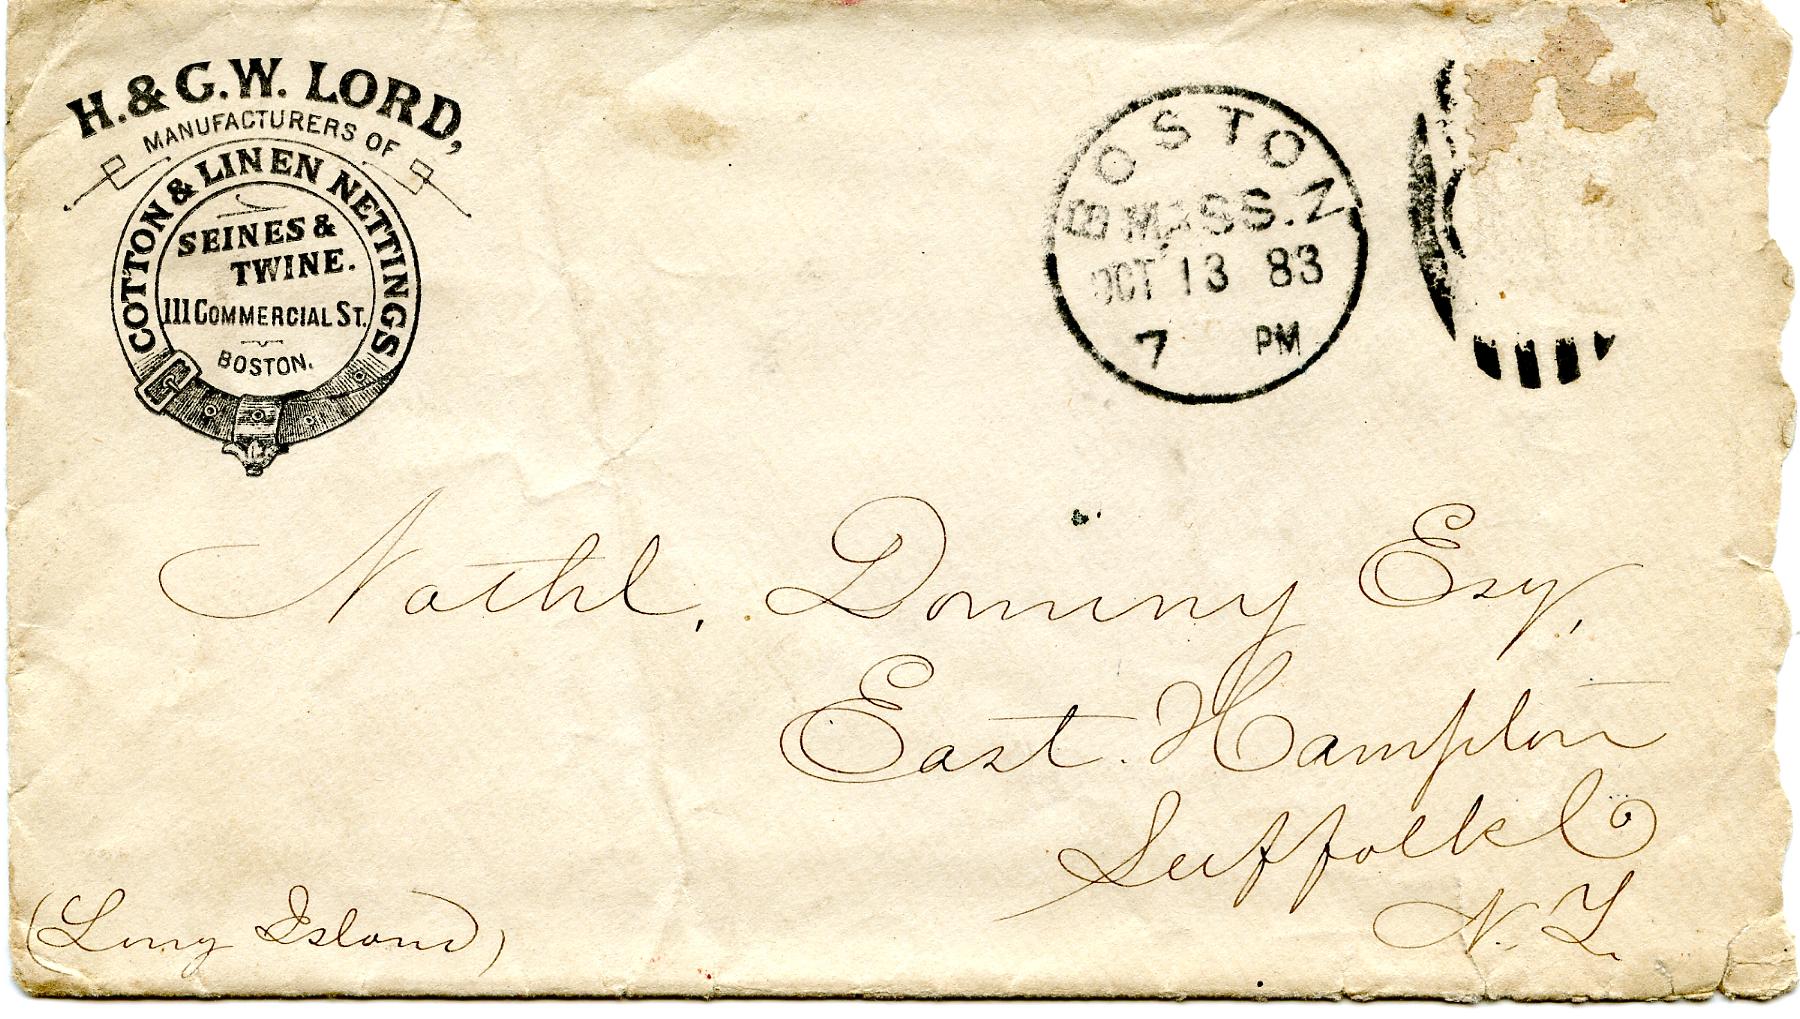 H. & G. W. LORD,
MANUFACTURERS OF
COTTON & LINEN NETTINGS
SEINES &
TWINE.
111 COMMERCIAL ST.
BOSTON.
BOSTON
MASS.
OCT 13 83
7 PM
Nathl. Dominy Esq,
East Hampton
Suffolk Co
N. Y.
(Long Island)